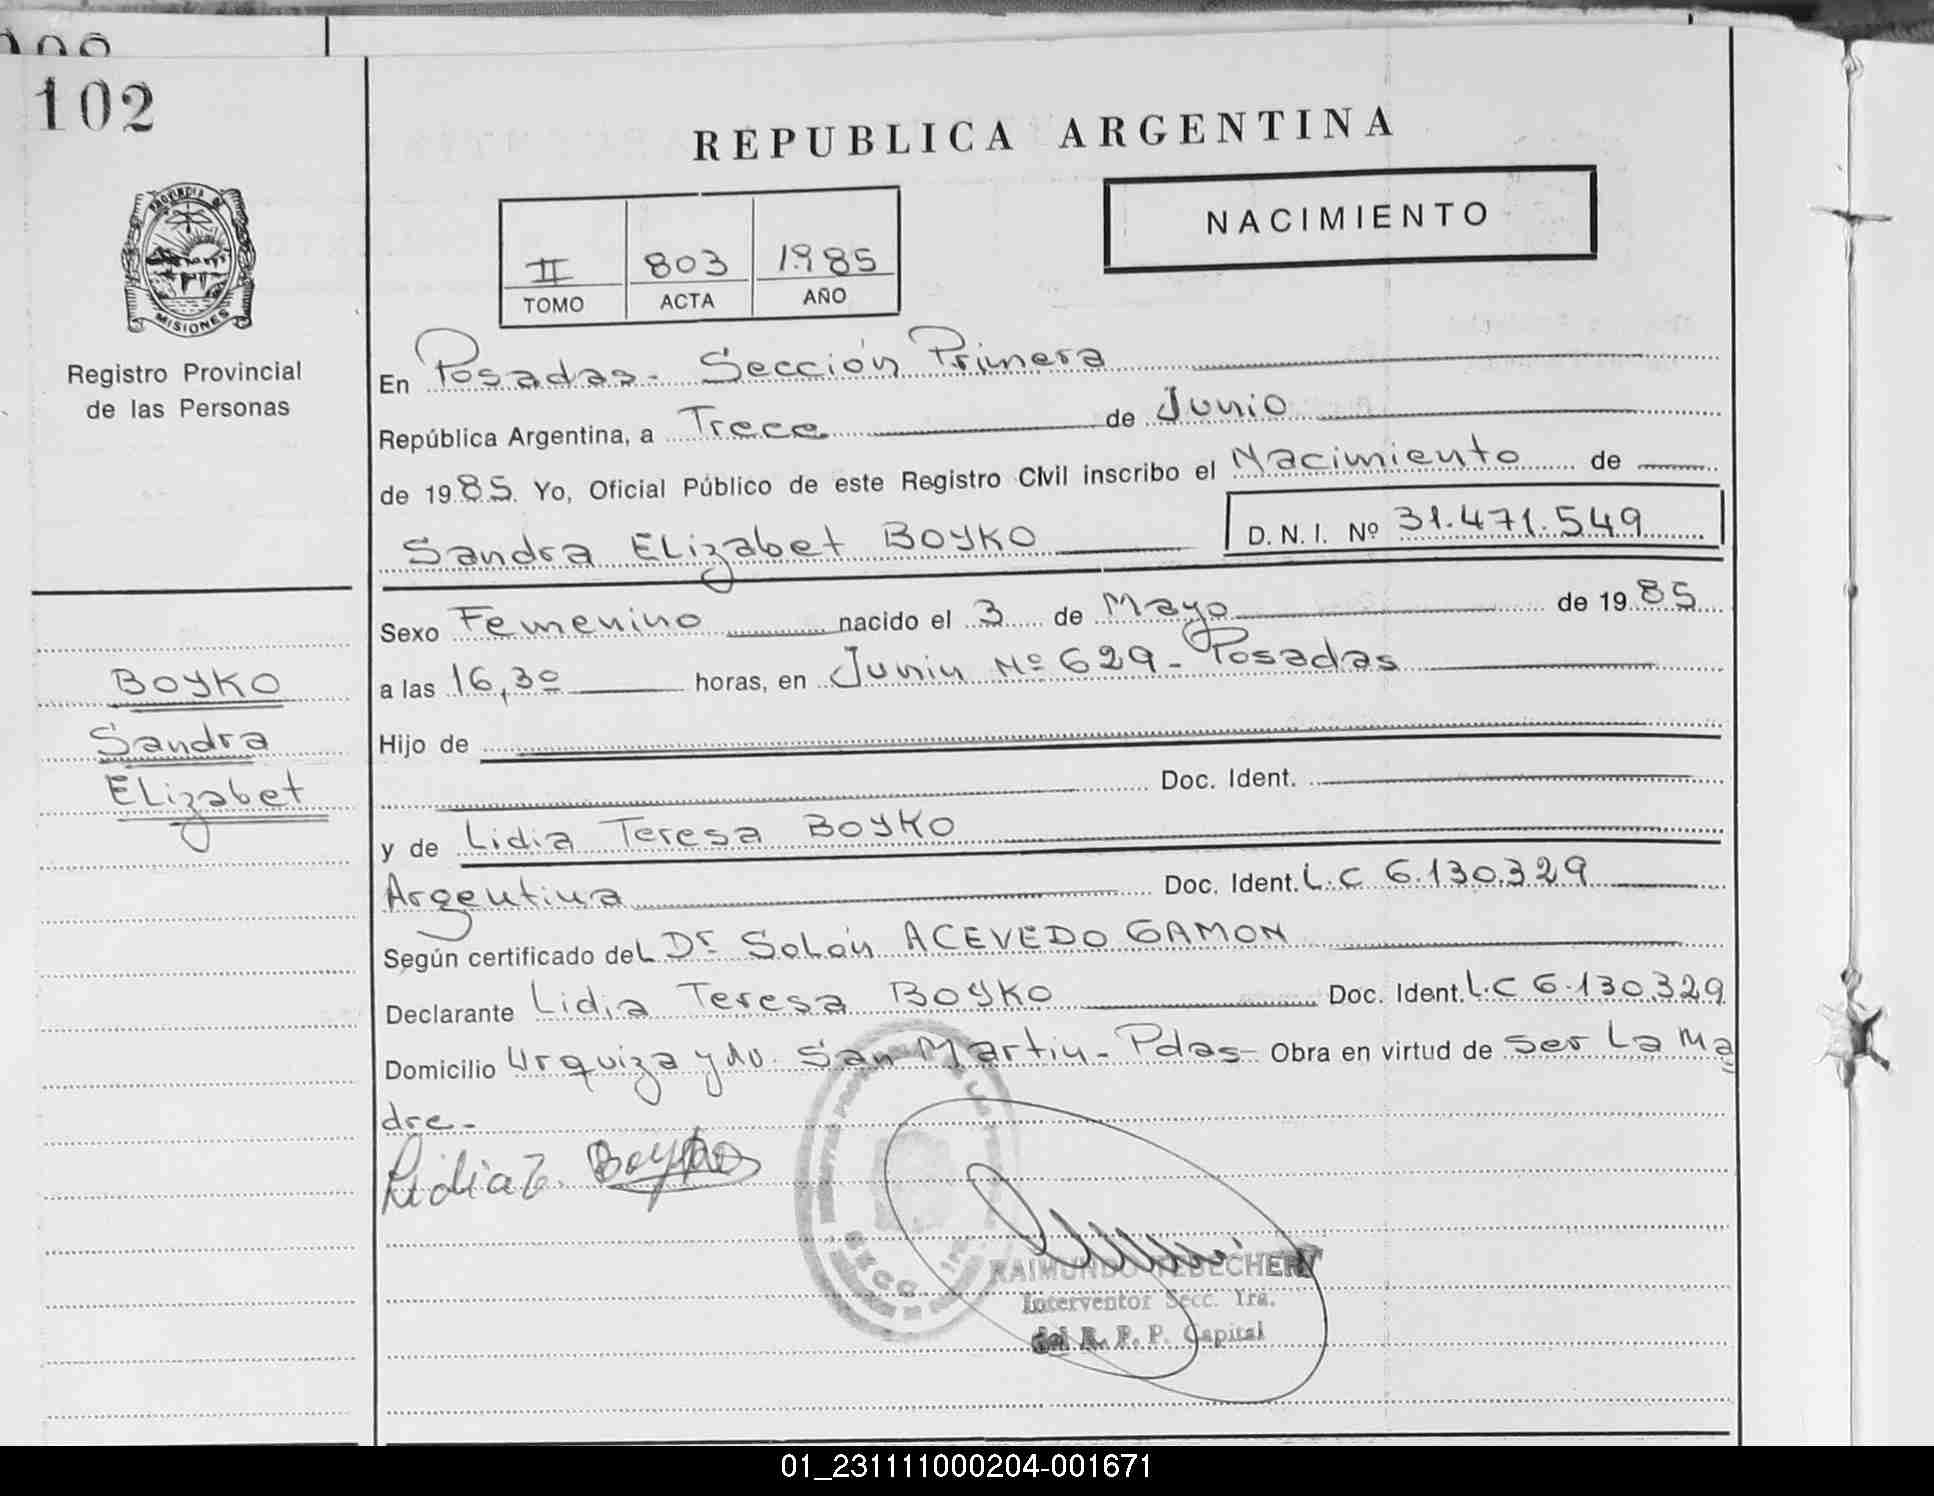 102
REPUBLICA ARGENTINA
NACIMIENTO
II 803 1985
TOMO ACTA AÑO
PROVINCIA DE
MISIONES
Registro Provincial
de las Personas
En Posadas - Sección Primera
República Argentina, a Trece de Junio
de 1985. Yo, Oficial Público de este Registro Civil inscribo el Nacimiento de
Sandra Elizabet BOYKO D. N. I. Nº 31.471.549
Sexo Femenino nacido el 3 de Mayo de 1985
a las 16,30 horas, en Junin Nº 629 - Posadas
Hijo de
Doc. Ident.
y de Lidia Teresa BOYKO
Argentina Doc. Ident. L.C 6.130.329
Según certificado del Dr Solón ACEVEDO GAMON
Declarante Lidia Teresa BOYKO Doc. Ident. L.C 6.130.329
Domicilio Urquiza y Av. San Martin - Pdas - Obra en virtud de ser La Ma
dre.-
BOYKO
Sandra
Elizabet
Lidia T. Boyko
SECC. 1ra.
RAIMUNDO
Interventor Secc. 1ra.
del R. P. P. Capital
01_231111000204-001671